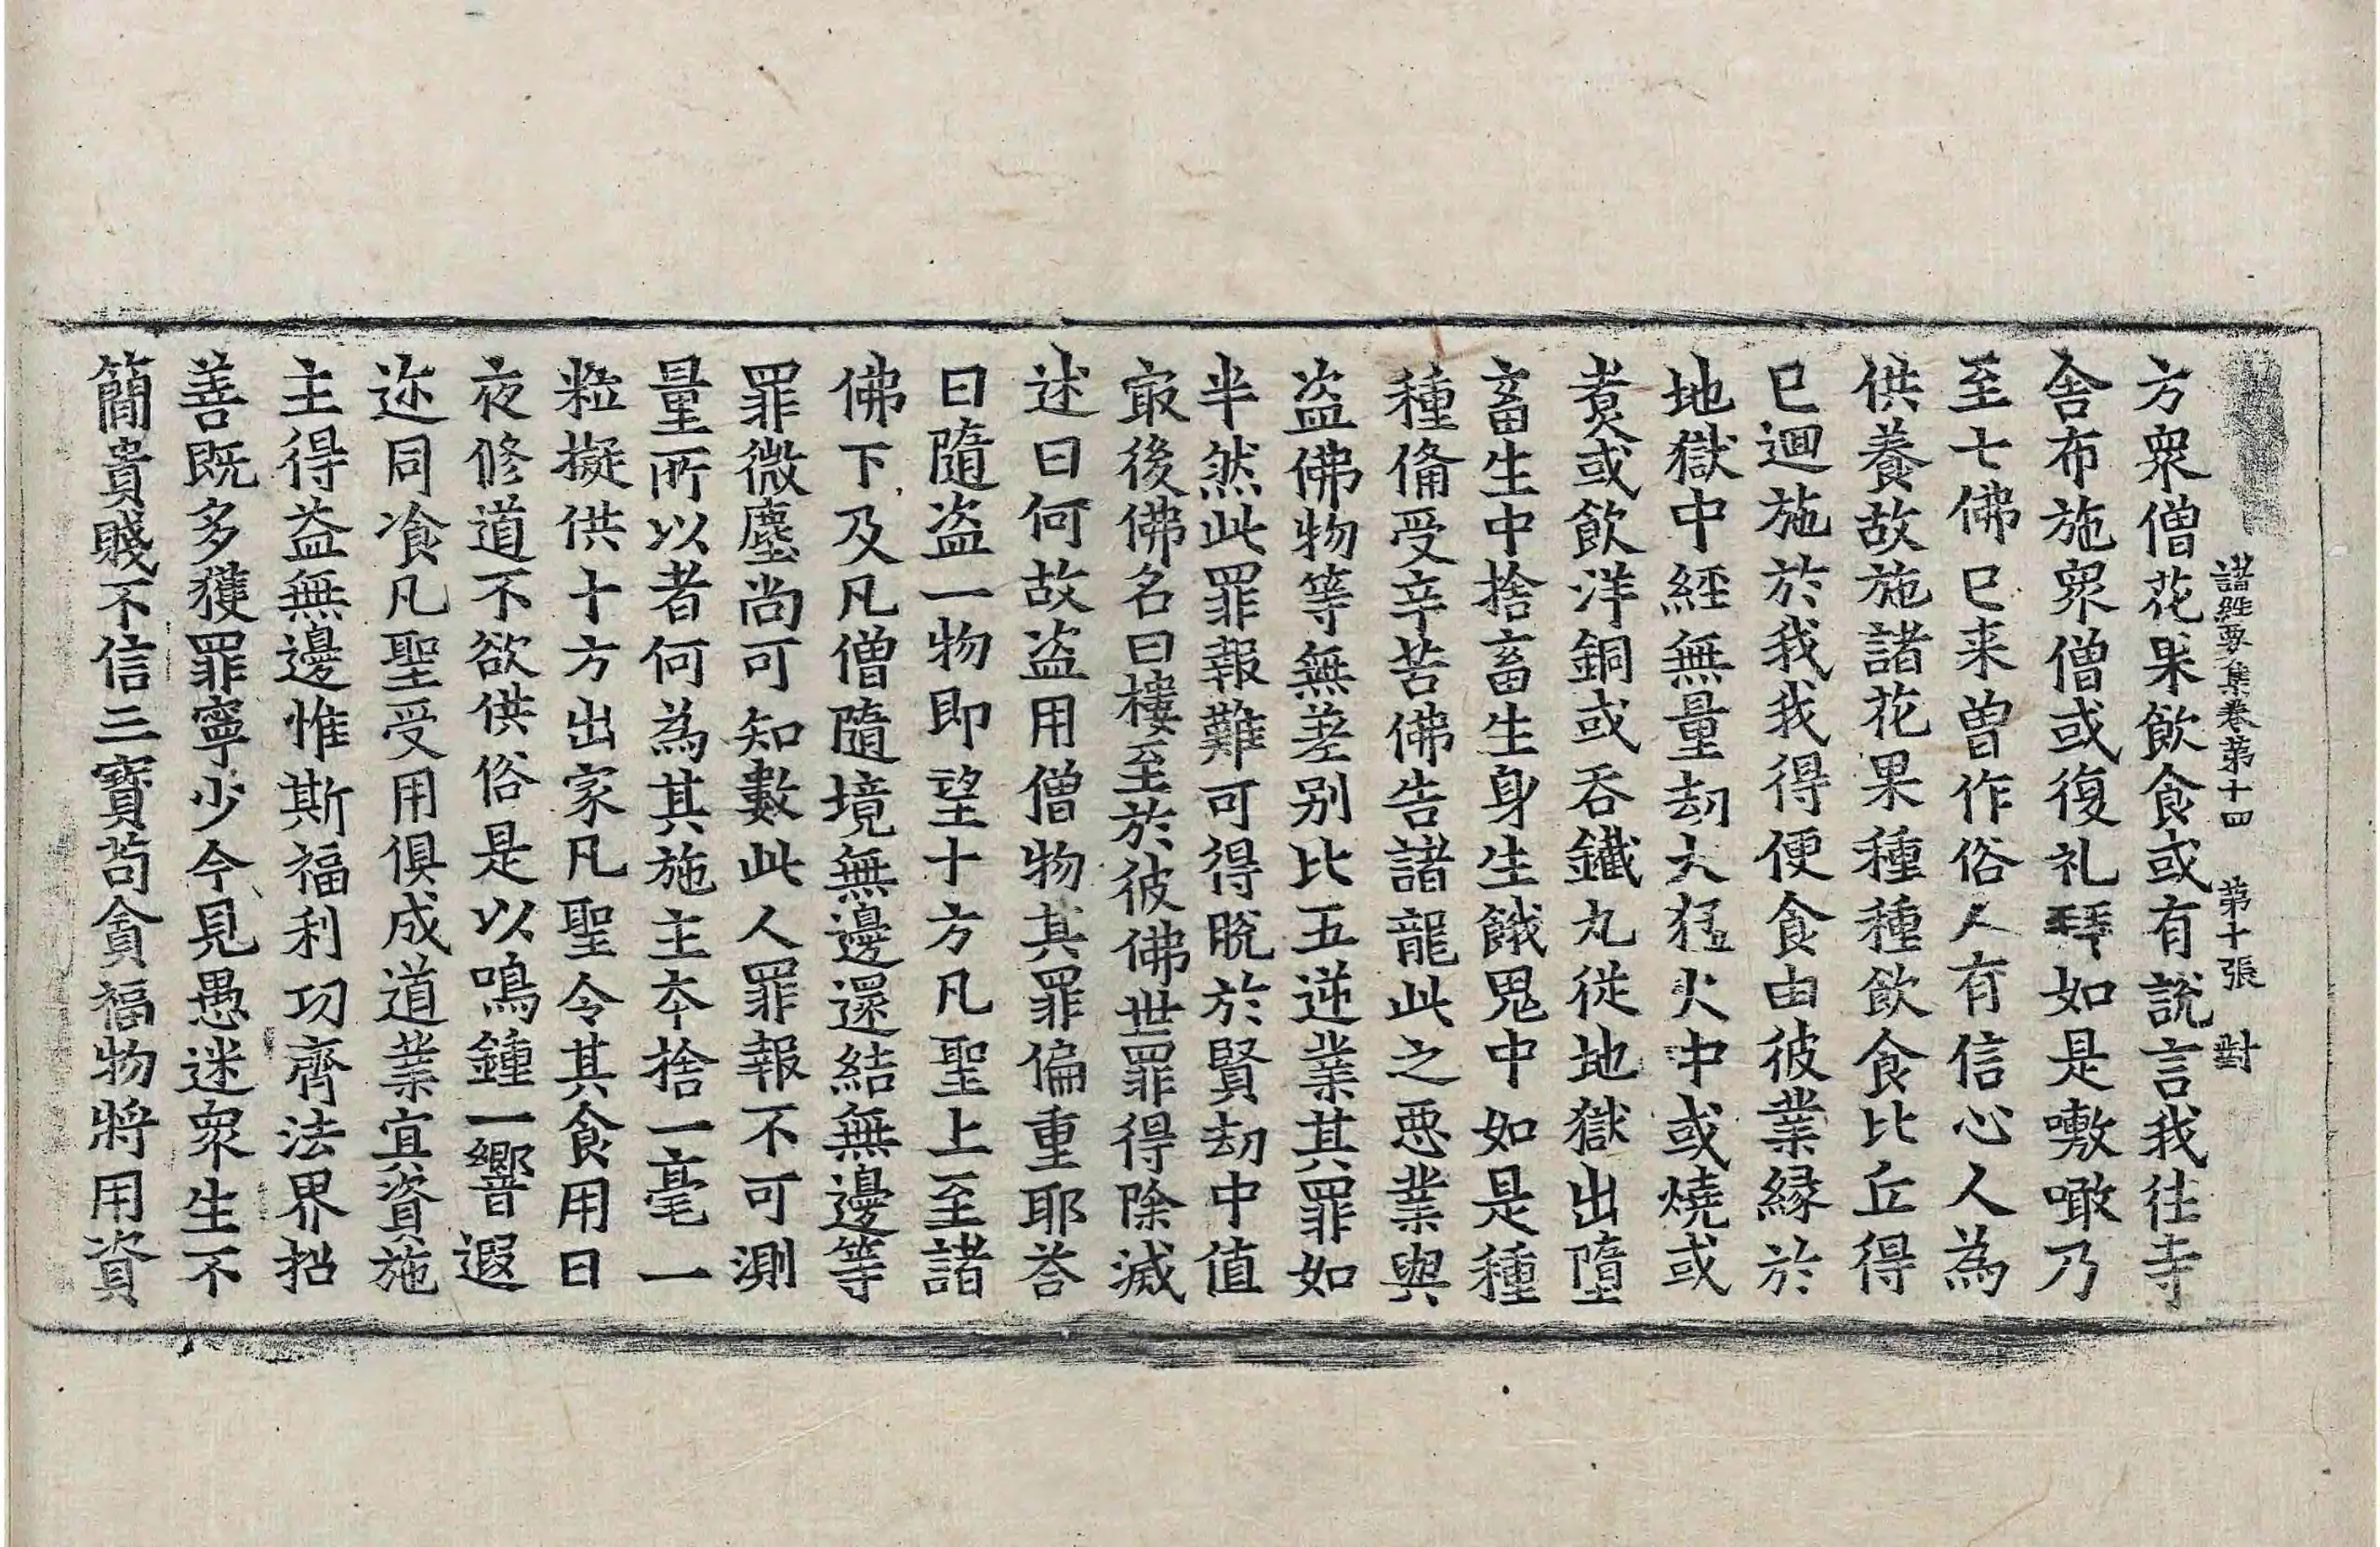 諸經要集卷第十四 第十張 對
方衆僧花果飲食或有說言我往寺
舍布施衆僧或復礼拜如是嗷噉乃
至七佛已来曽作俗人有信心人為
供養故施諸花果種種飲食比丘得
已迴施於我我得便食由彼業縁於
地獄中經無量劫大猛火中或燒或
煑或飲洋銅或吞鐵丸從地獄出墮
畜生中捨畜生身生餓鬼中如是種
種俻受辛苦佛告諸龍此之惡業與
盜佛物等無差别比五逆業其罪如
半然此罪報難可得脫於賢劫中值
冣後佛名曰樓至於彼佛世罪得除滅
述曰何故盜用僧物其罪偏重耶荅
曰隨盜一物即望十方凡聖上至諸
佛下及凡僧隨境無邊還結無邊等
罪微塵尚可知數此人罪報不可測
量所以者何為其施主夲捨一毫一
粒擬供十方出家凡聖令其食用日
夜修道不欲供俗是以鳴鍾一響遐
迩同飡凡聖受用俱成道業宜資施
主得益無邊惟斯福利功齊法界招
善既多獲罪寧少今見愚迷衆生不
簡貴賤不信三寶苟貪福物將用資